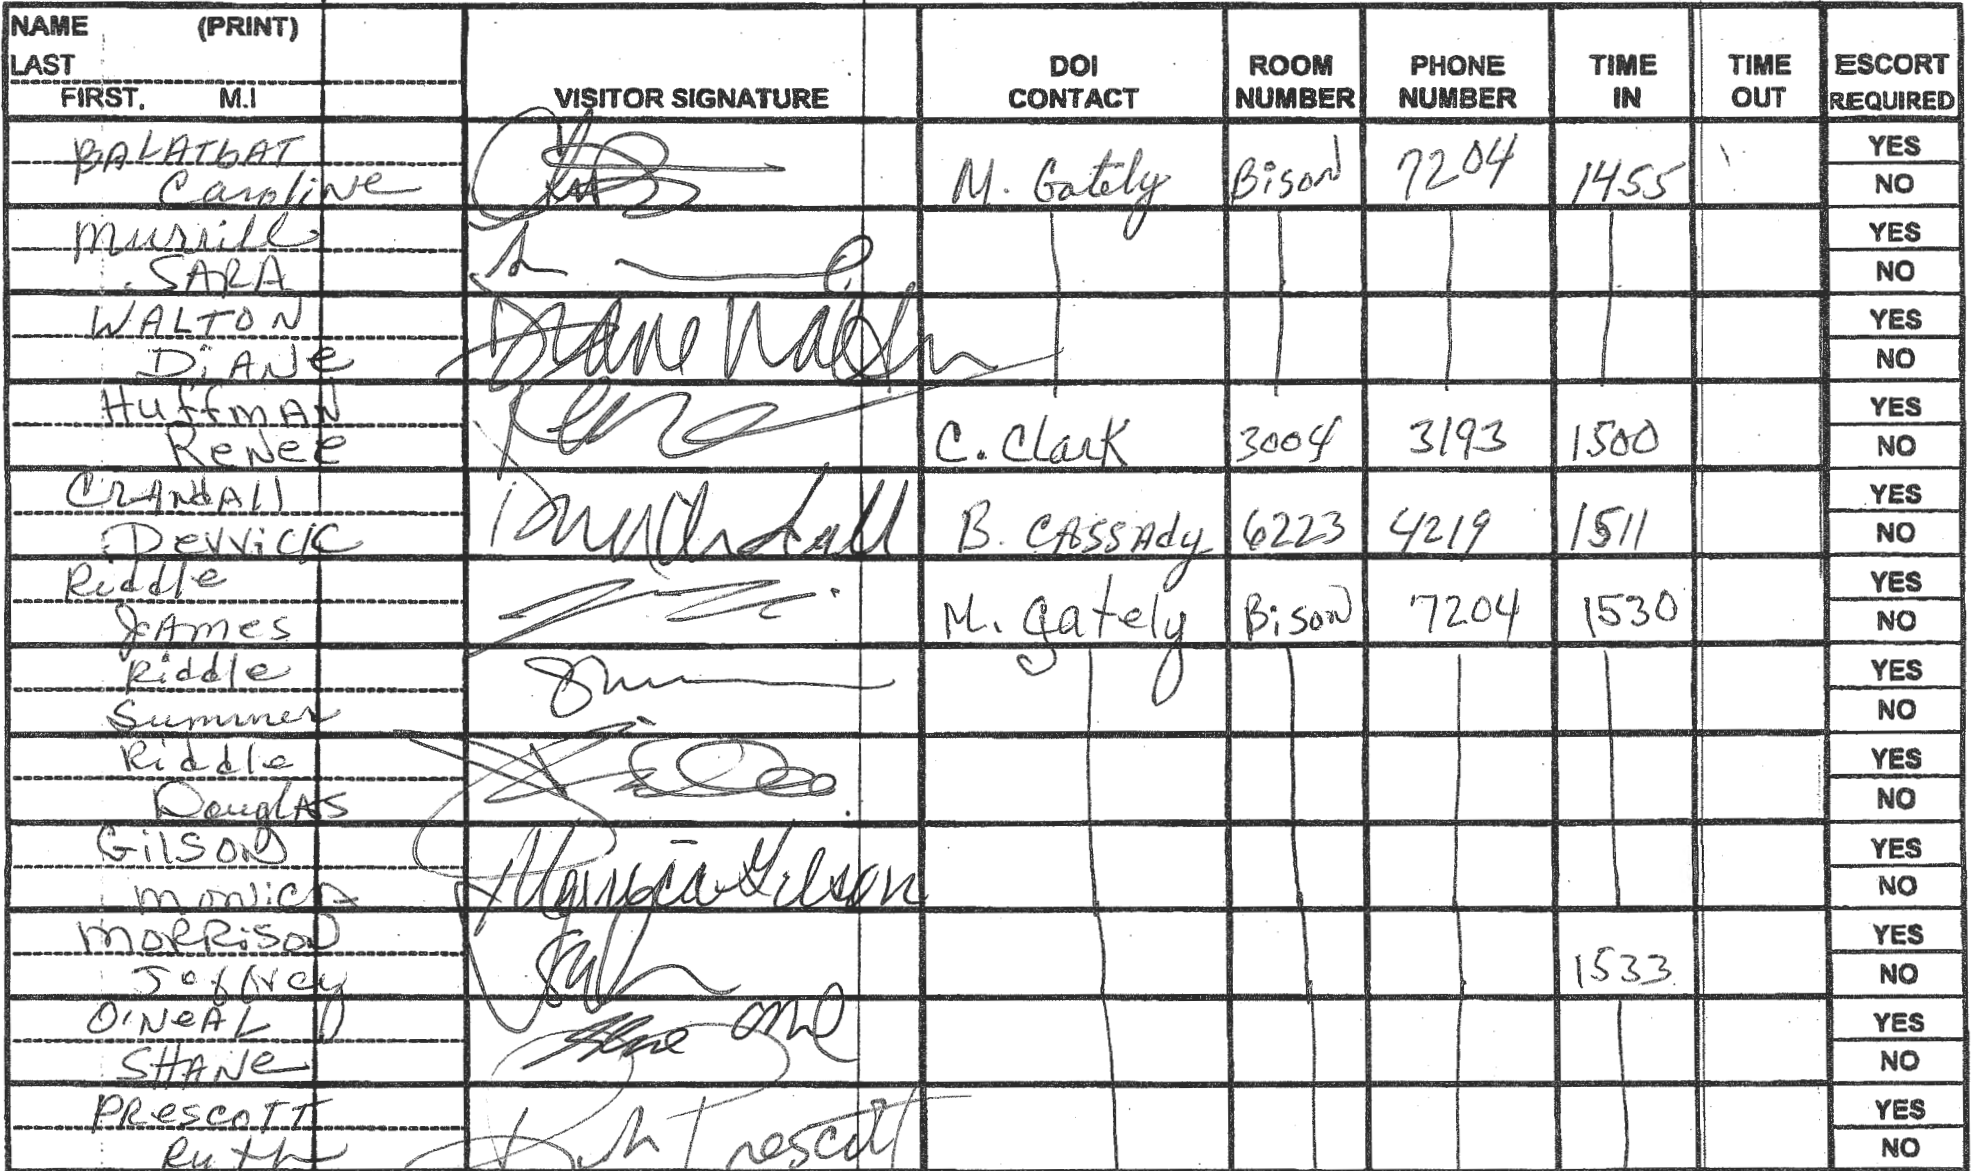 NAME (PRINT)
LAST
FIRST, M.I
VISITOR SIGNATURE
DOI CONTACT
ROOM NUMBER
PHONE NUMBER
TIME IN
TIME OUT
ESCORT REQUIRED
BALATBAT
Caroline M. Gately Bison 7204 1455 YES NO
Murrill
SARA YES NO
WALTON
DIANE Diane Walton YES NO
HUffMAN
ReNee C. Clark 3004 3193 1500 YES NO
CRANdAll
Derrick B. CASSAdy 6223 4219 1511 YES NO
Riddle
JAmes M. Gately Bison 7204 1530 YES NO
Riddle
Summer YES NO
Riddle
DouglAS YES NO
GilSON
MONiCA Monica Gilson YES NO
MORRiSON
Jeffrey 1533 YES NO
O'NeAL
SHANe YES NO
PRescoTT
Ruth Ruth Prescott YES NO